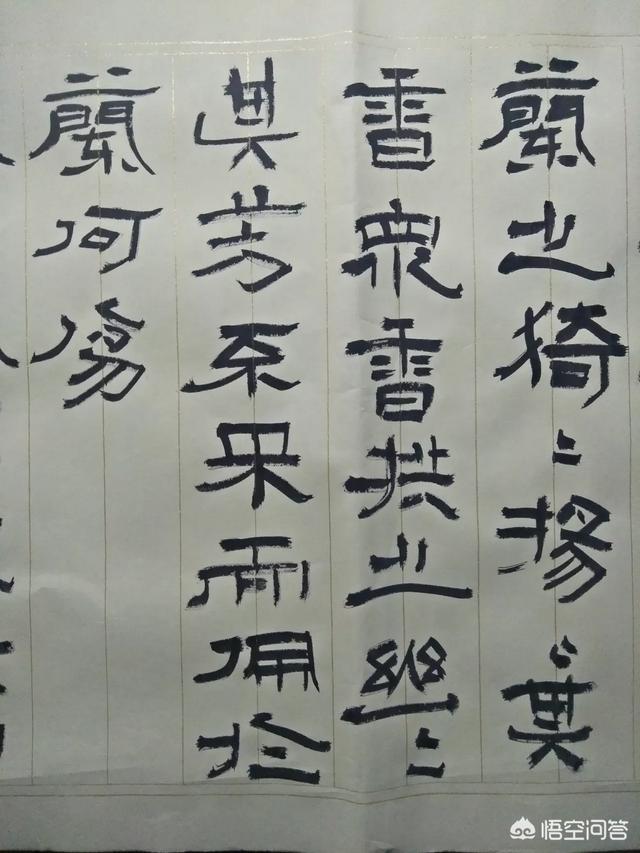 蘭之猗〻揚〻其
香眾香拱之幽〻
其芳不采而佩於
蘭何傷
悟空问答